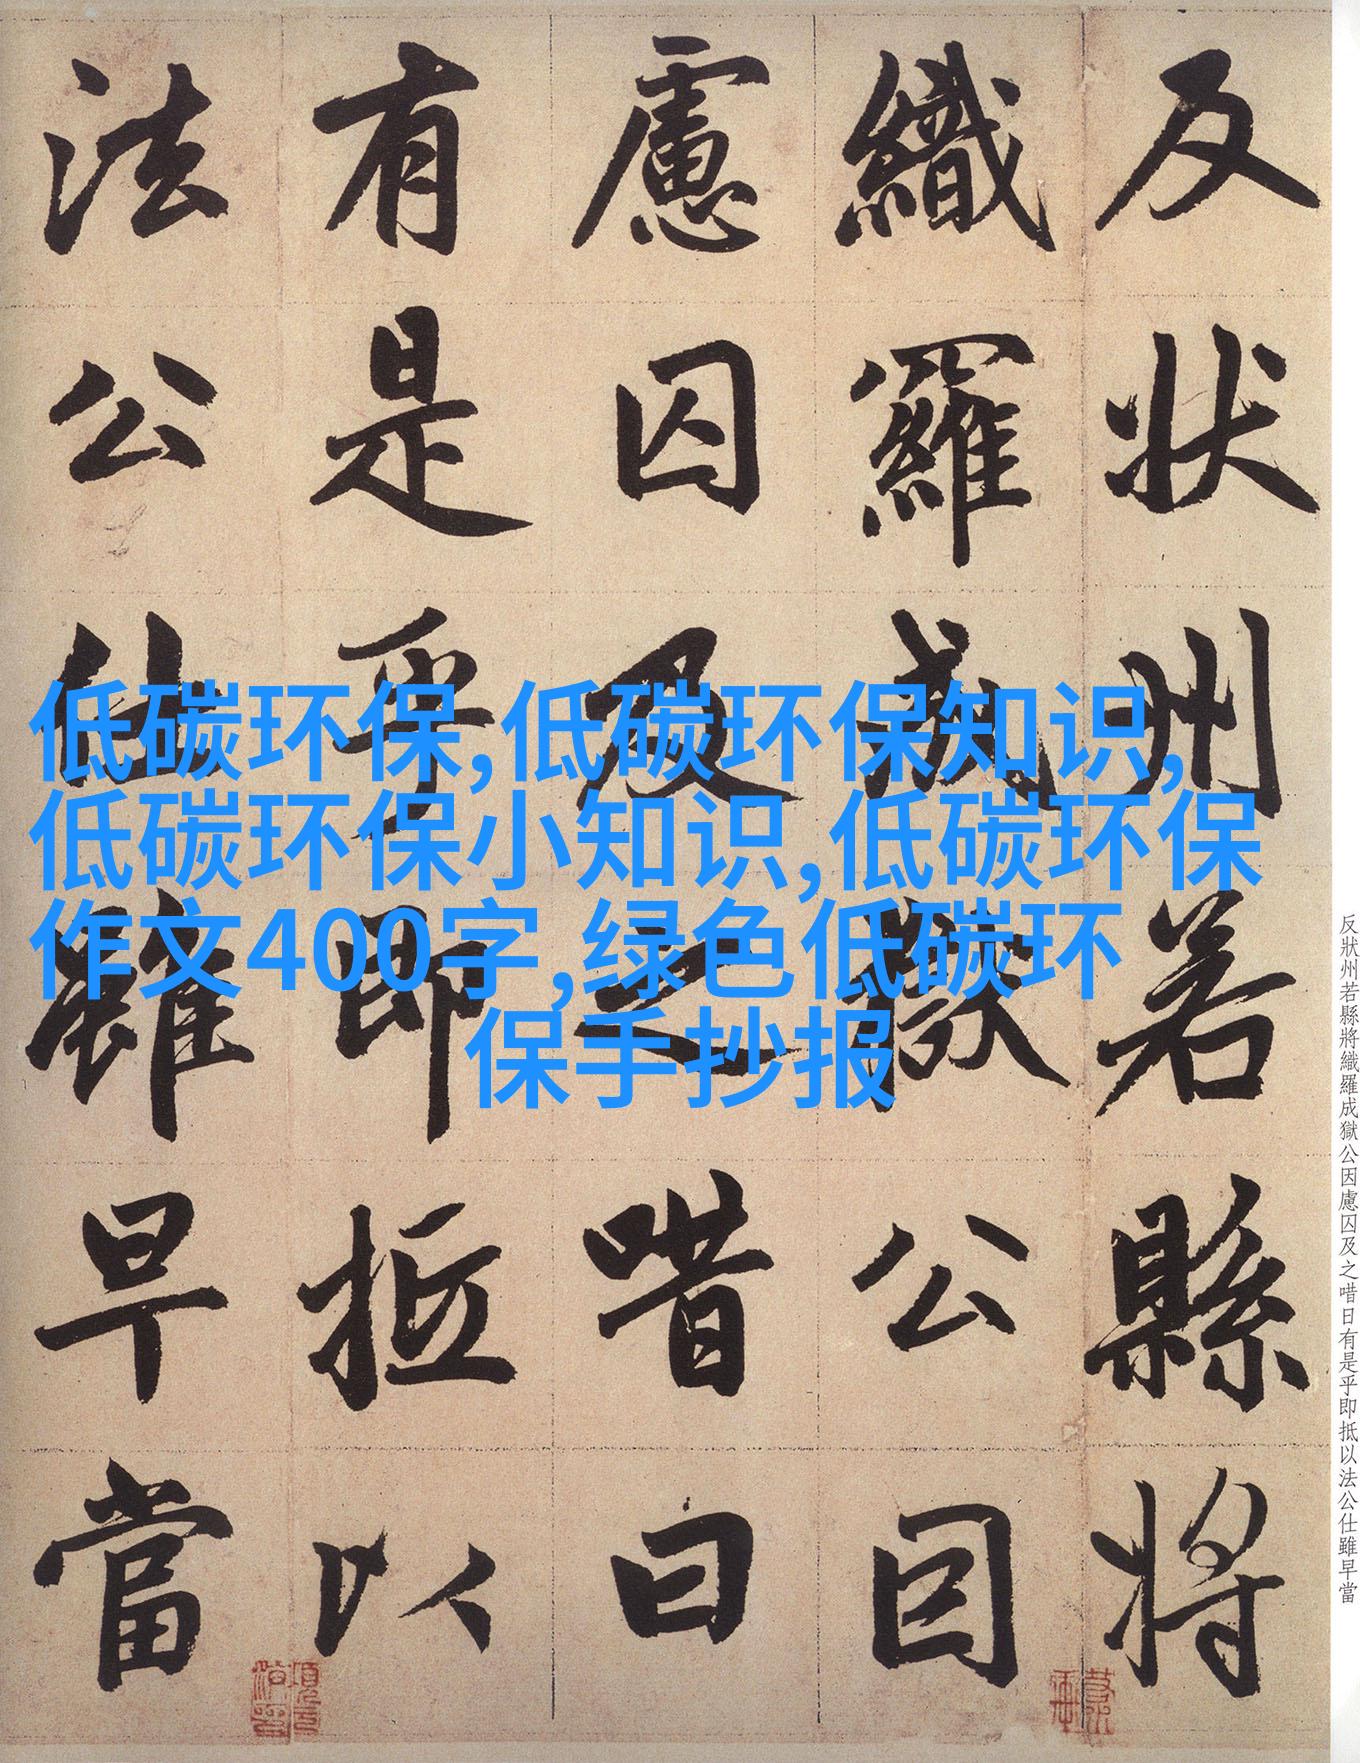 反状州若縣將
織羅成獄公因
慮囚及之唶曰
有是乎即抵以
法公仕雖早當
低碳环保,低碳环保知识,
低碳环保小知识,低碳环保
作文400字,绿色低碳环
保手抄报
反狀州若縣將織羅成獄公因慮囚及之唶日有是乎即抵以法公仕雖早當